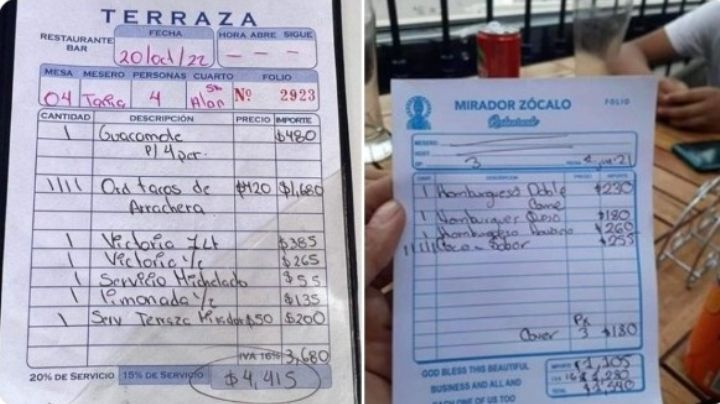 TERRAZA
RESTAURANTE BAR
FECHA
20/oct/22
HORA ABRE SIGUE
— — —
MESA MESERO PERSONAS CUARTO FOLIO
04 Tania 4 Sr Alan Nº 2923
CANTIDAD DESCRIPCIÓN PRECIO IMPORTE
1 Guacamole $480
p/ 4 per.
1111 Ord tacos de $420 $1,680
Arrachera
1 Victoria 1Lt $385
1 Victoria 1/2 $265
1 Servicio Michelado $55
1 limonada 1/2 $135
1 Serv Terraza Mirador $50 $200
IVA 16% 3,680
20% DE SERVICIO 15% DE SERVICIO $4,415
MIRADOR ZÓCALO
Restaurante
FOLIO
MESERO:
3
CANT. DESCRIPCION PRECIO IMPORTE
1 Hamburguesa Doble $230
Carne
1 Hamburguer Queso $180
1 Hamburguesa $260
Coca - Sabor $255
Cover Px 3 $180
GOD BLESS THIS BEAUTIFUL
BUSINESS AND ALL AND
EACH ONE OF US TOO
IMPORTE $1,105
IVA 16 $1,280
TOTAL $1,540